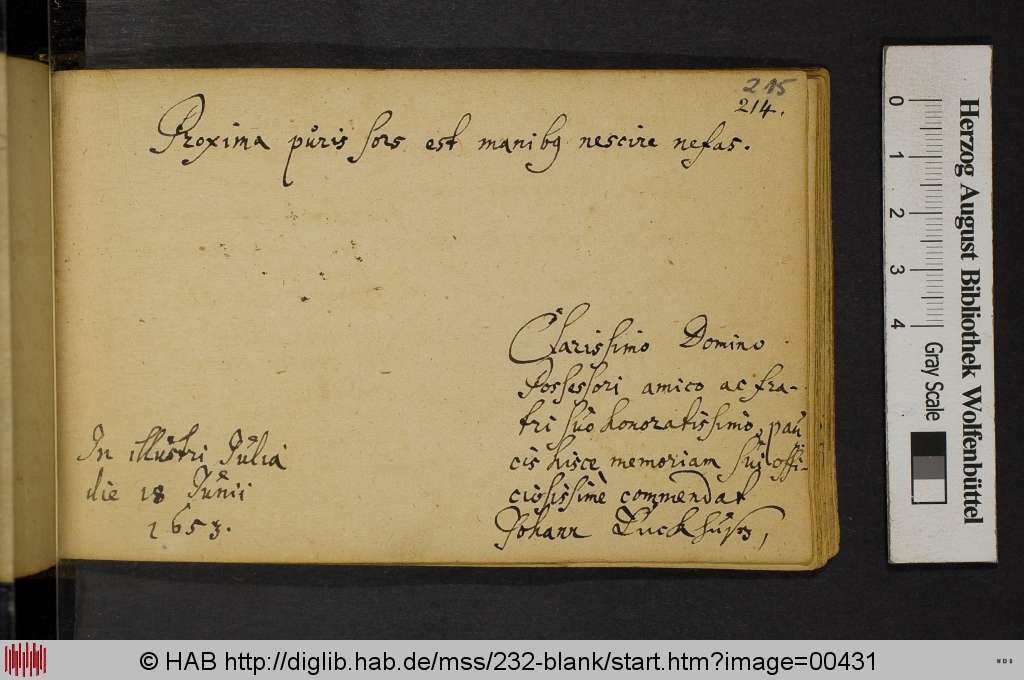 215
214.
Proxima pùris sors est manibq nescire nefas.
Clarissimo Domino
Possessori amico ac fra-
tri sùo honoratissimo, paù
cis hisce memoriam sui offi-
ciosissimè commendat
Johann
In illùstri Jùlia
die 18 Jùnii
1653.
0
1
2
3
4
Gray Scale
Herzog August Bibliothek Wolfenbüttel
© HAB http://diglib.hab.de/mss/232-blank/start.htm?image=00431
HDB